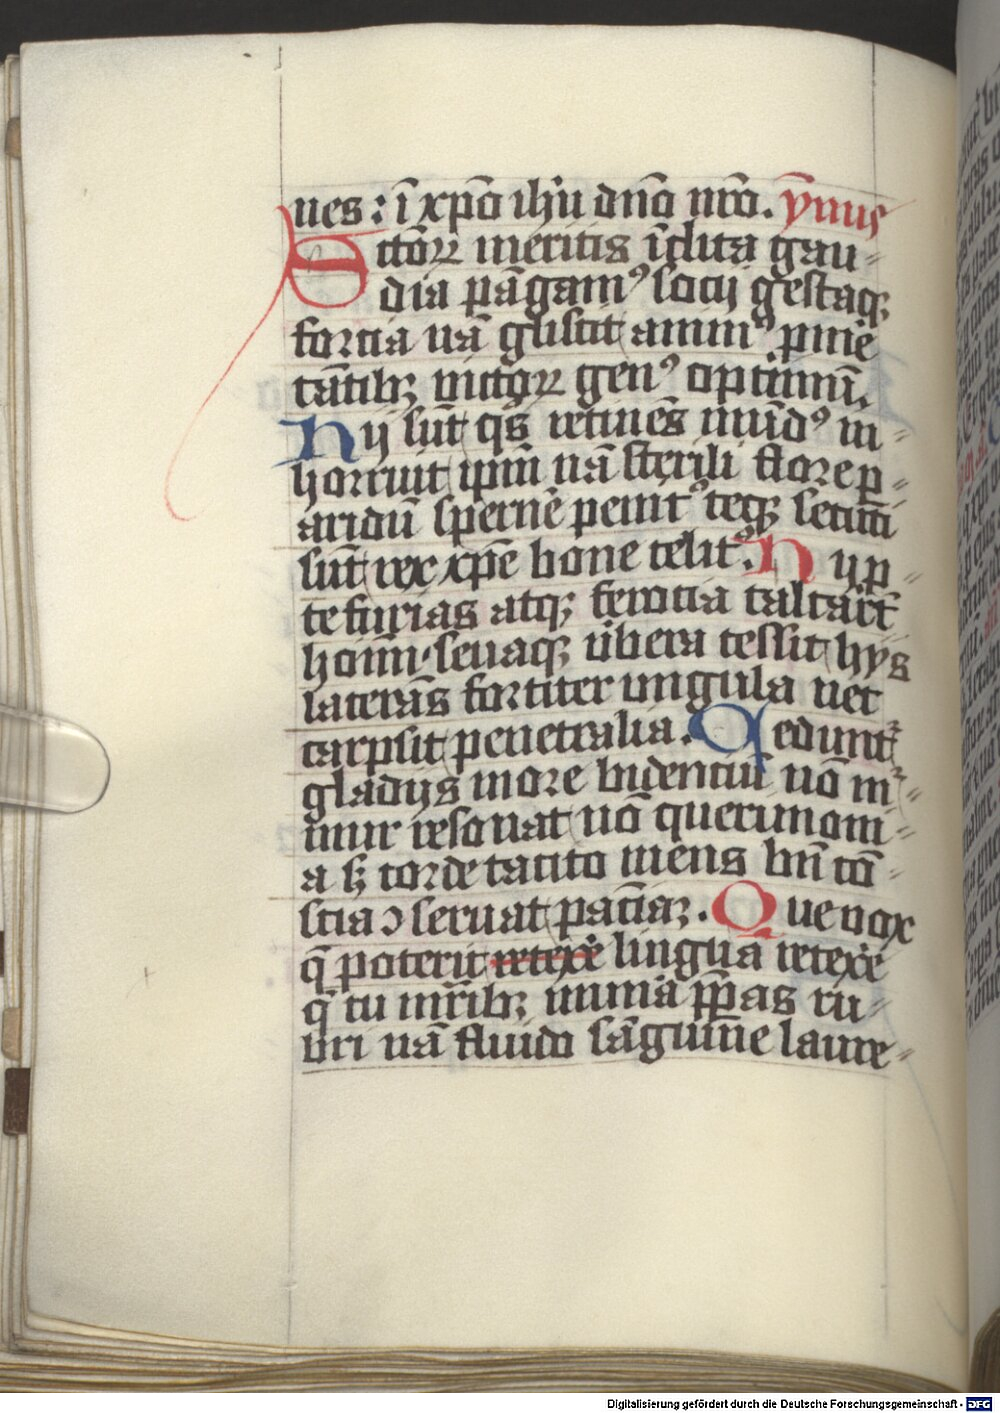 ues : ī xp̄o ih̄u dn̄o nr̄o. ymus
Sctōꝝ meritis īclita gau⸗
dia pāgamꝰ socij gestaqꝫ
forcia nā gliscit animꝰ pme
tātibꝫ victoꝝ genꝰ optimū.
Hij sūt qs̄ retinēs mūdꝰ in⸗
horruit ipm̄ nā sterili flore ꝑ⸗
aridū spernē penitꝰ teqꝫ secuti
sūt rex xp̄e bone celitꝰ. Hij ꝑ⸗
te furias atqꝫ ferocia calcarūt
hoīm seuaqꝫ ūbera cessit hys
laterās fortiter ungula nec
carpsit penetralia. Cedunt̄
gladijs more bidenciū nō m⸗
mur resonat nō querimoni⸗
a sꝫ corde tacito mens bn̄ cō⸗
scia ↄseruat paciāꝫ. Que vox
q̄ poterit retexe᷑ lingua retexe᷑
q̄ tu mr̄ibꝫ munīa ꝑꝑas ru⸗
bri nā fluido sāguine laure⸗
Digitalisierung gefördert durch die Deutsche Forschungsgemeinschaft - DFG